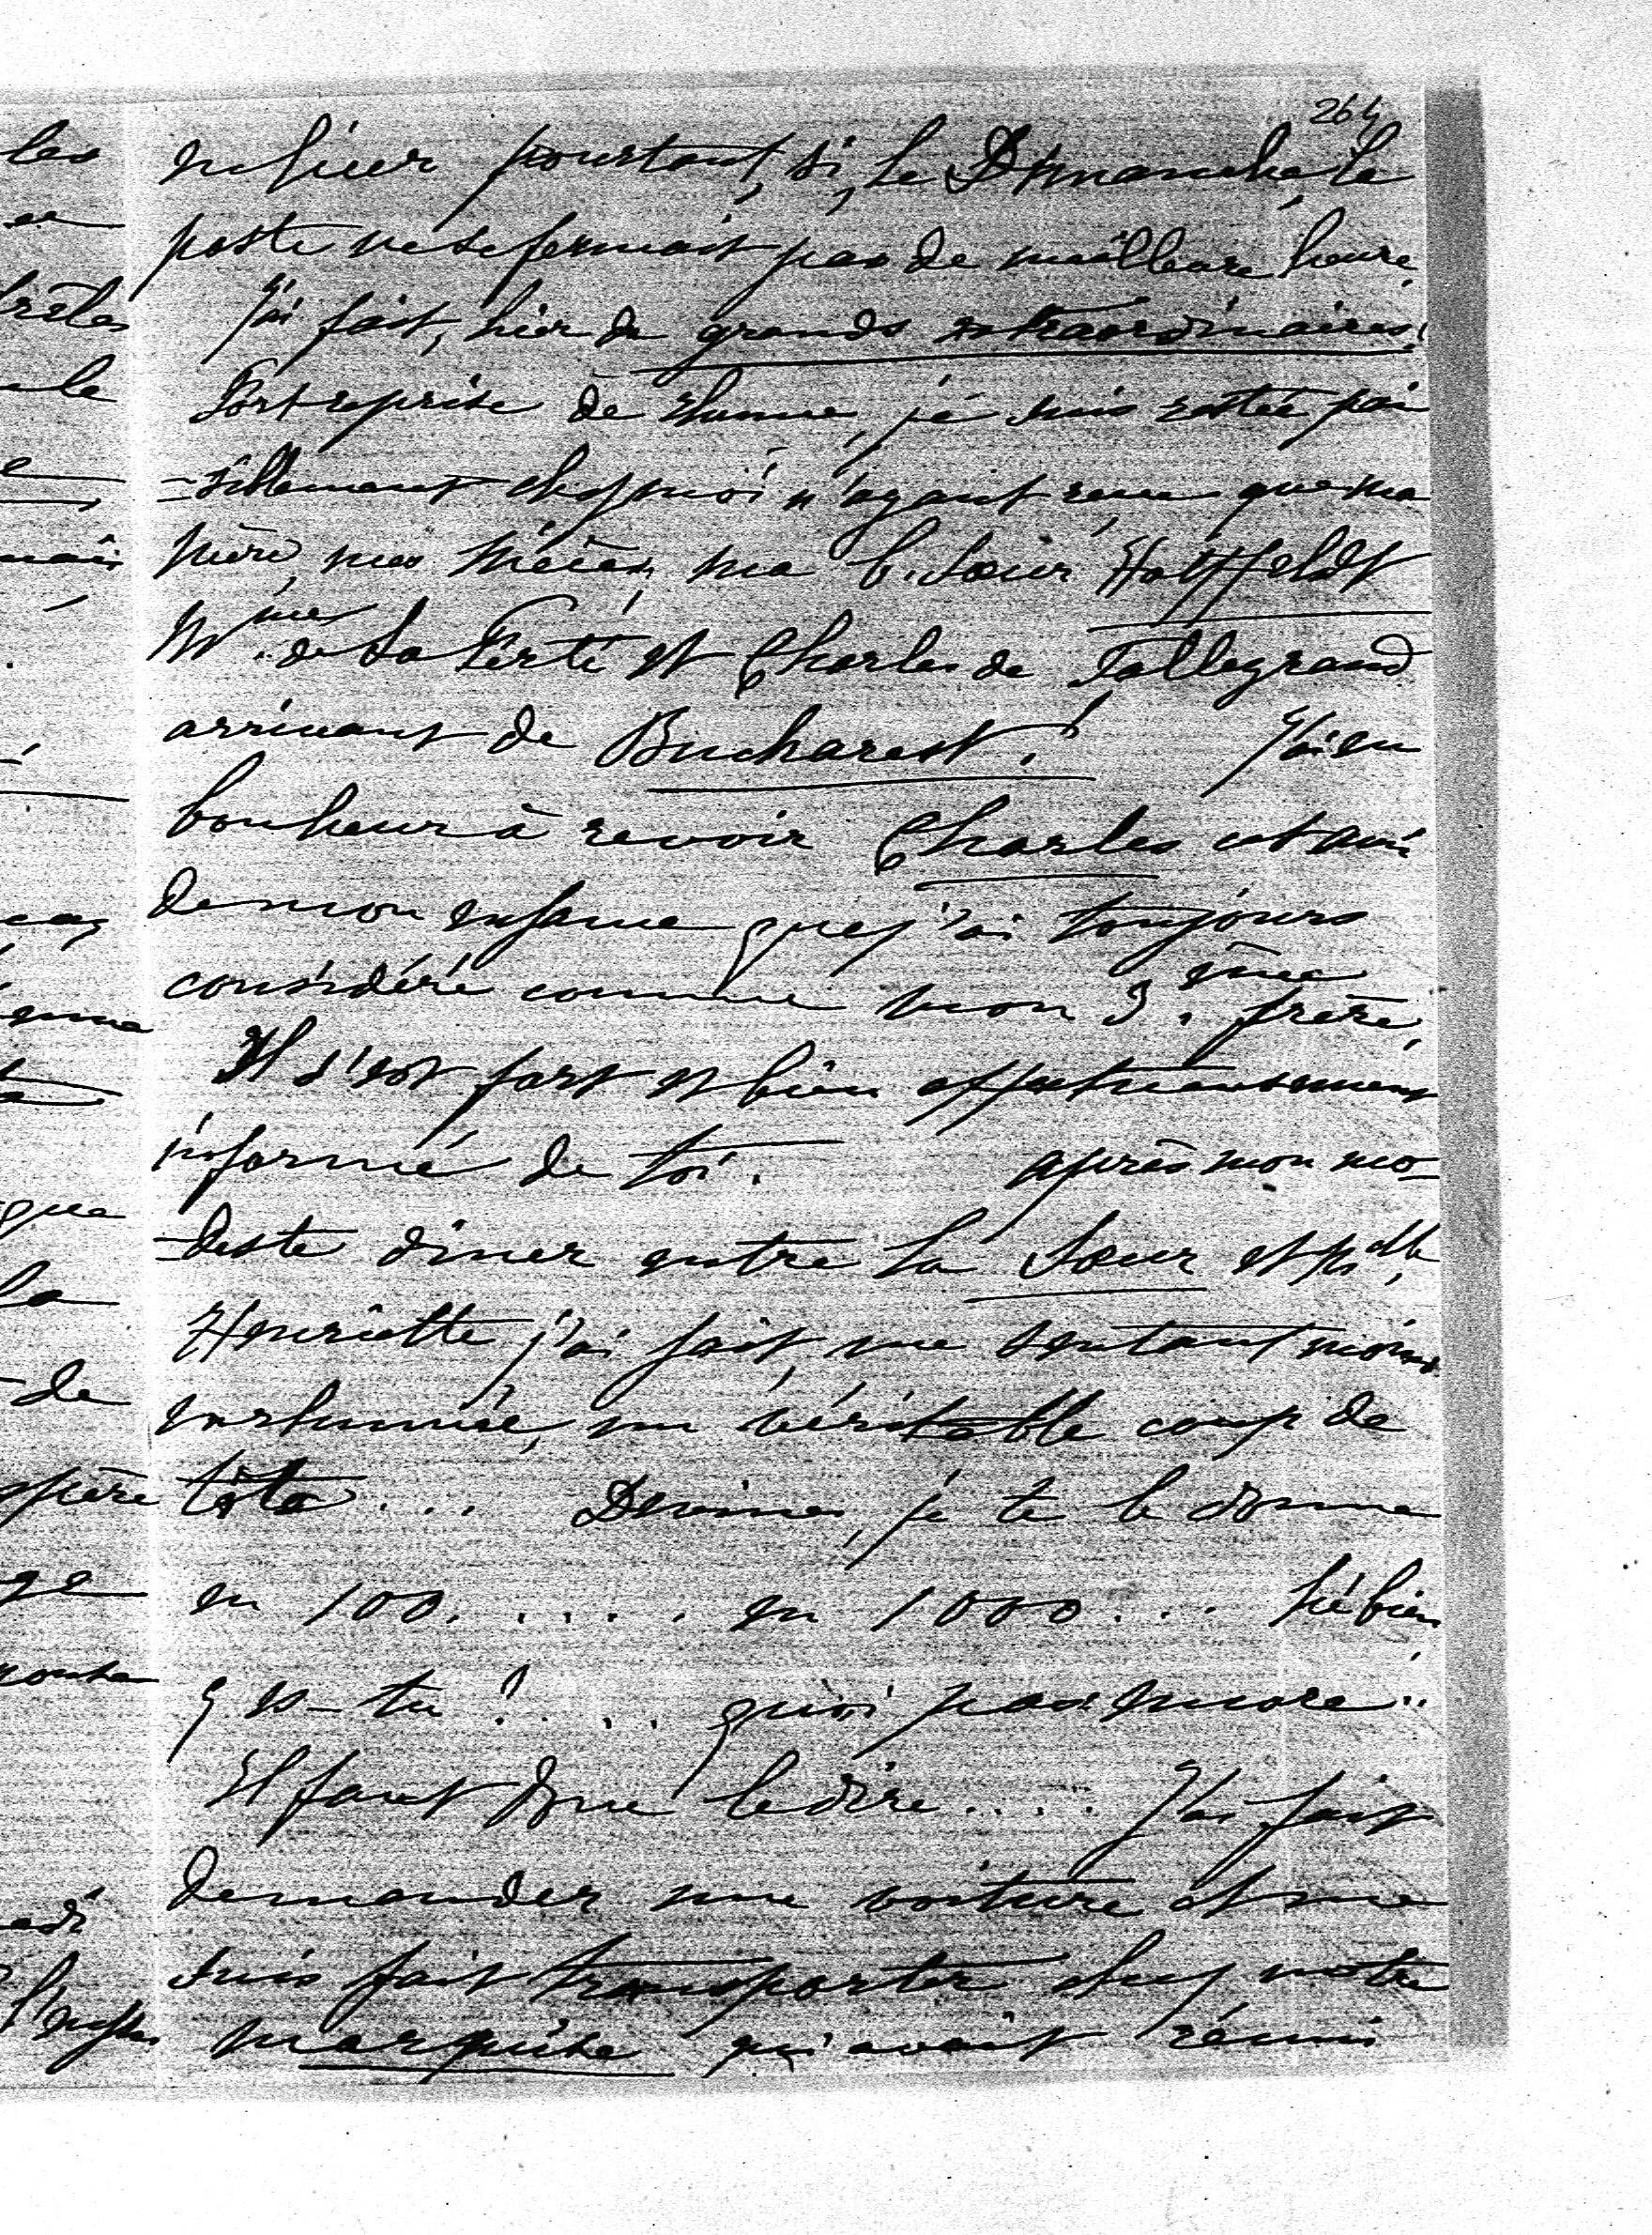 264
pourtant, si, le Dimanche, la
poste ne se fermait pas de meilleure heure.
J'ai fait, hier de grands extraordinaires!
Fort reprise de rhume, je suis restée pai
=siblement chez moi n'ayant reçu que ma
mère, mes nièces, ma b. soeur Hatzfeldt
Mme de La Ferté et Charles de Talleyrand
arrivant de Bucharest! J'ai eu
bonheur à revoir Charles cet ami
de mon enfance que j'ai toujours
considéré comme mon 3.ème frère.
Il s'est fort et bien affectueusement
informé de toi. après mon mo
=deste diner entre la Soeur et Melle
Henriette j'ai fait, me sentant moins
enrhumée, un véritable coup de
tête... Devines, je te le donne
en 100..... en 1000... hé bien
y es-tu?... quoi pas encore..
Il faut donc le dire.... J'ai fait
demander une voiture et me
suis fait transporter chez notre
marquise qui avait réuni
les
que
la
de